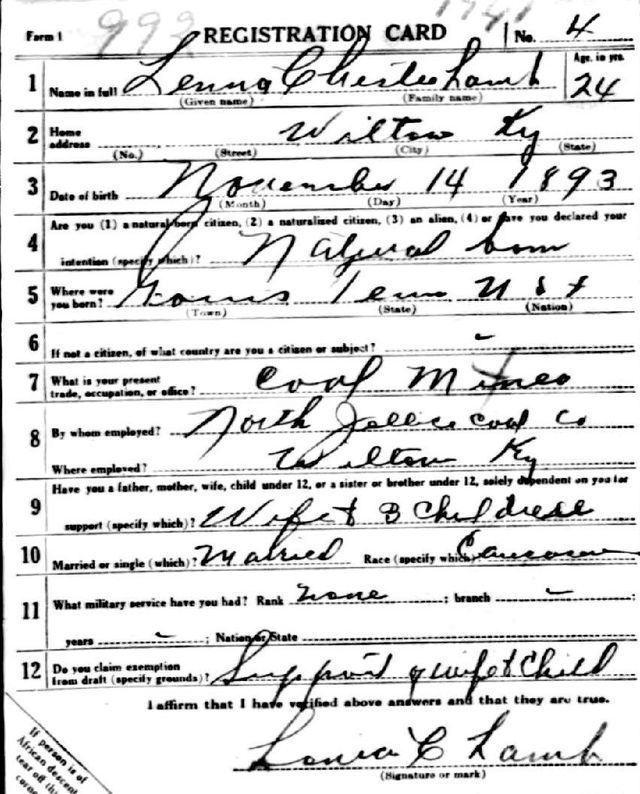 Form 1 992 REGISTRATION CARD No. 4
1 Name in full Lenna Chester Lamb Age, in yrs. 24
(Given name) (Family name)
2 Home address Wilton Ky
(No.) (Street) (City) (State)
3 Date of birth November 14 1893
(Month) (Day) (Year)
4 Are you (1) a natural-born citizen, (2) a naturalized citizen, (3) an alien, (4) or have you declared your
intention (specify which)? Natural born
5 Where were you born? Tenn U S A
(Town) (State) (Nation)
6 If not a citizen, of what country are you a citizen or subject? -
7 What is your present trade, occupation, or office? Coal Miner
8 By whom employed? North Jellico Coal Co
Where employed? Wilton Ky
9 Have you a father, mother, wife, child under 12, or a sister or brother under 12, solely dependent on you for
support (specify which)? Wife & 3 Children
10 Married or single (which)? Married Race (specify which)? Caucasian
11 What military service have you had? Rank none ; branch - ;
years - ; Nation or State
12 Do you claim exemption from draft (specify grounds)? Support of wife & Child
I affirm that I have verified above answers and that they are true.
C Lamb
(Signature or mark)
If person is of
African descent
tear off this
corner